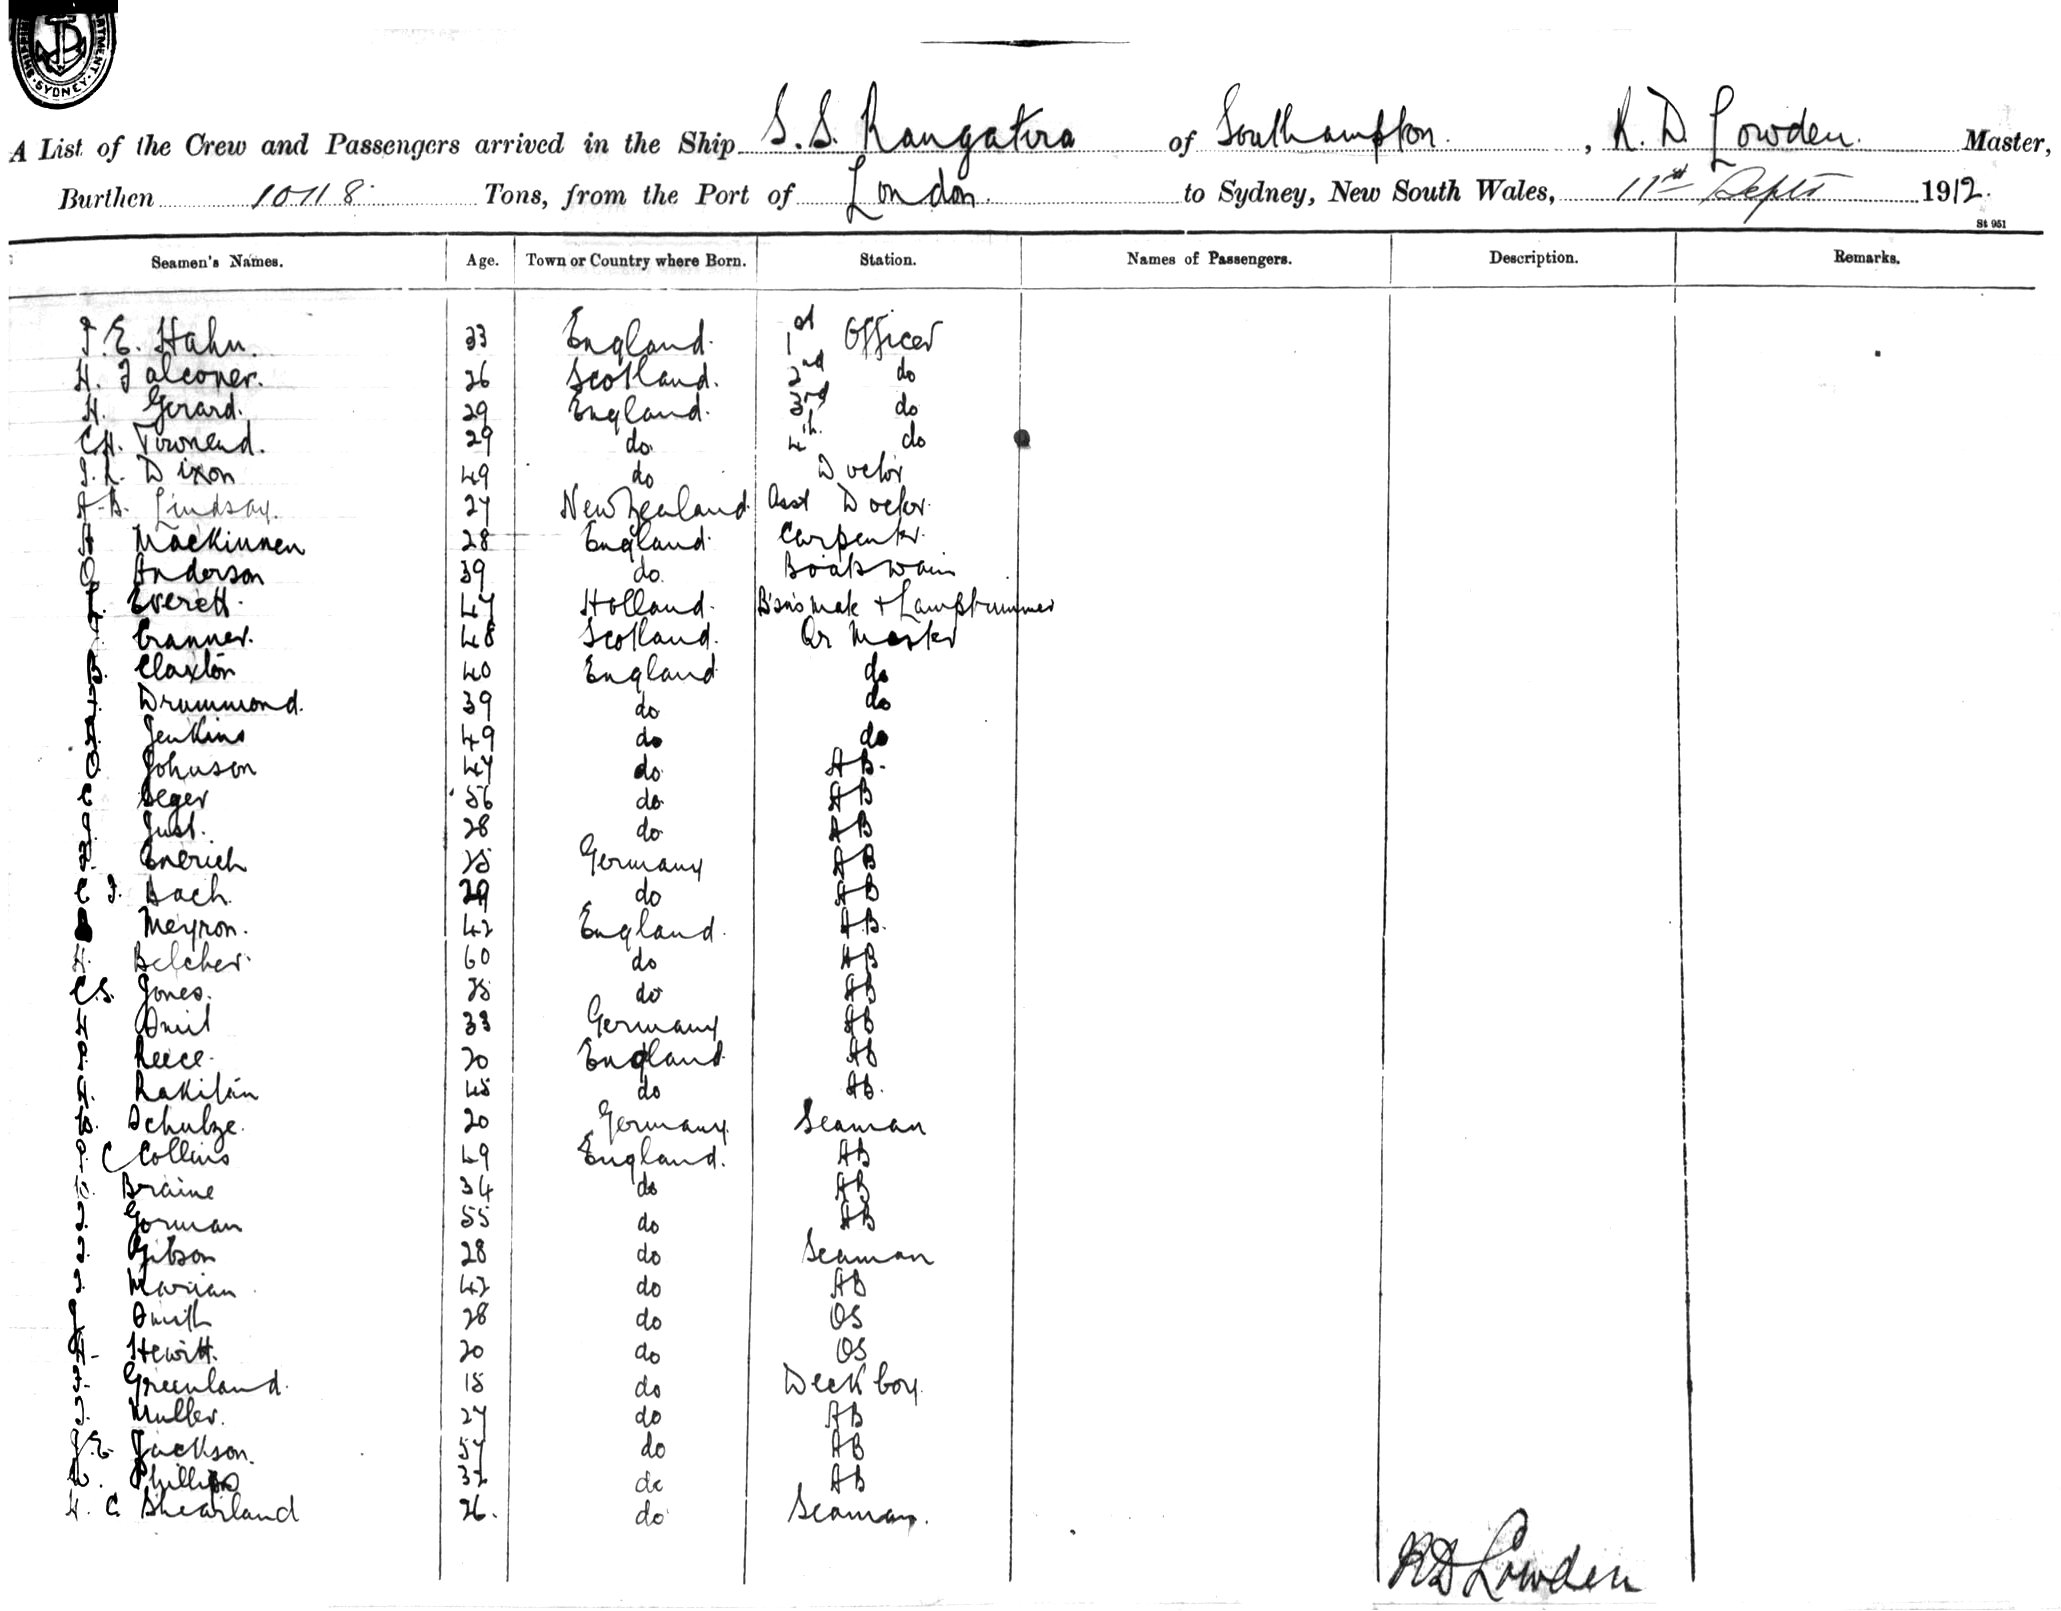 SYDNEY
A List of the Crew and Passengers arrived in the Ship S.S. Rangatira of Southampton. , R. D. Lowden. Master,
Burthen 10118 Tons, from the Port of London. to Sydney, New South Wales, 11th Sept 1912.
St 951
Seamen's Names. Age. Town or Country where Born. Station. Names of Passengers. Description. Remarks.
J. E. Hahn. 33 England. 1st Officer
H. Falconer. 26 Scotland. 2nd do
H. Gerard. 29 England. 3rd do
C.H. Townend. 29 do. 4th. do
Dixon 49 do Doctor
A. B. Lindsay. 27 New Zealand Asst Doctor.
MacKinnen 28 England. Carpenter.
Anderson 39 do. Boatswain
Everett. 47 Holland. B'sns Mate + Lamptrimmer
Cranner. 48 Scotland. Qr Master
Claxton 40 England do
Drummond. 39 do do
Jenkins 49 do do
Johnson 47 do AB.
Seger 56 do AB
Just. 28 do AB
Enerich 25 Germany AB
J. Bach. 29 do AB
Meyron. 42 England. AB.
H. Belcher. 60 do AB
C.S. Jones. 25 do AB
33 Germany AB
Reece. 20 England AB
45 do AB.
Schulze. 20 Germany. Seaman
C Collins 49 England. AB
Braine 34 do AB
Gorman 55 do AB
Gibson 28 do Seaman
Marian 42 do AB
Smith 28 do OS
Hewitt. 20 do OS
Greenland. 18 do Deck boy.
Muller. 27 do AB
J.E. Jackson. 57 do AB
Phillips 32 do AB
H. C. Shearland 26. do Seaman.
RD Lowden